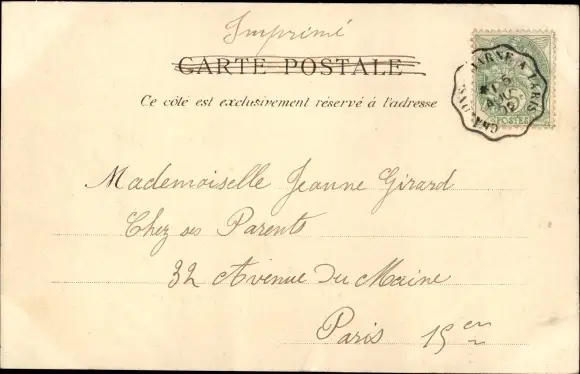 Imprimé
CARTE POSTALE
Ce côté est exclusivement réservé à l'adresse
POSTES
Mademoiselle Jeanne Girard
Chez ses Parents
32 Avenue Du Maine
Paris 15en